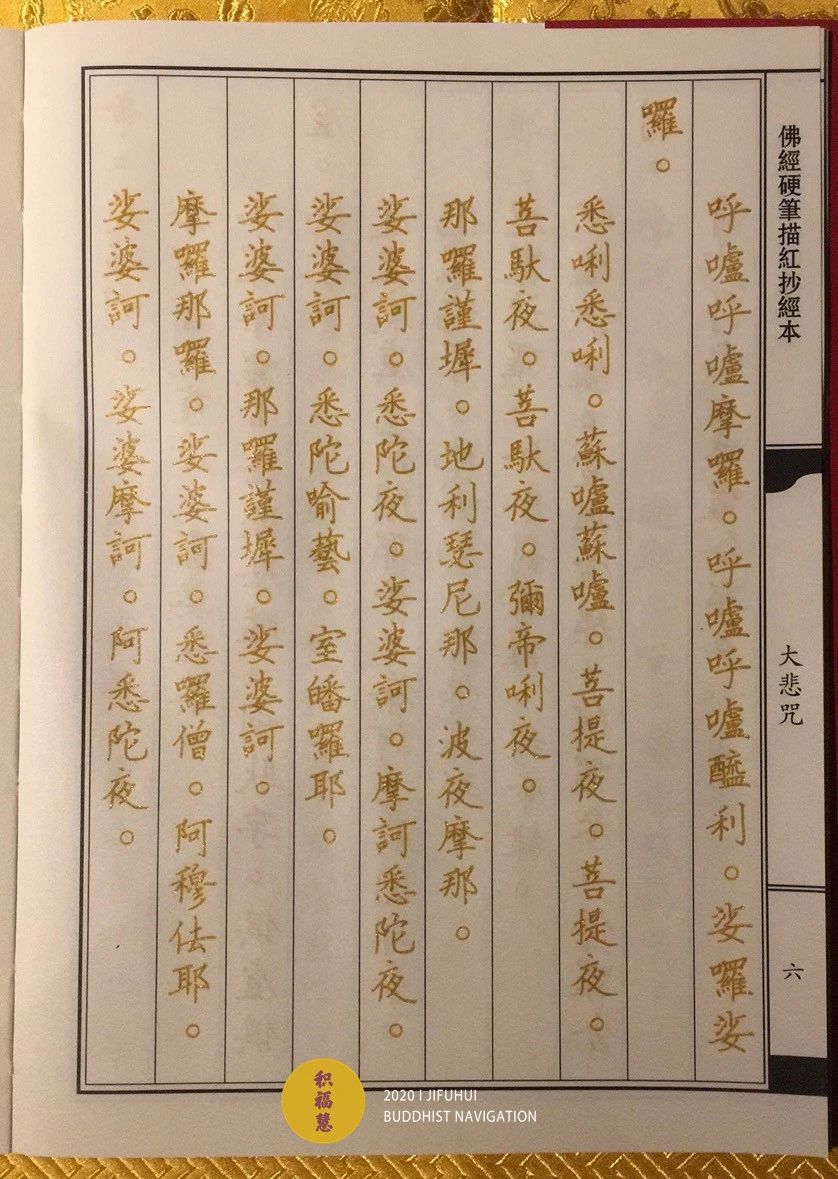 佛經硬筆描紅抄經本
大悲咒
六
呼嚧呼嚧摩囉。呼嚧呼嚧醯利。娑囉娑
囉。
悉唎悉唎。蘇嚧蘇嚧。菩提夜。菩提夜。
菩馱夜。菩馱夜。彌帝唎夜。
那囉謹墀。地利瑟尼那。波夜摩那。
娑婆訶。悉陀夜。娑婆訶。摩訶悉陀夜。
娑婆訶。悉陀喻藝。室皤囉耶。
娑婆訶。那囉謹墀。娑婆訶。
摩囉那囉。娑婆訶。悉囉僧。阿穆佉耶。
娑婆訶。娑婆摩訶。阿悉陀夜。
积福慧
2020 I JIFUHUI
BUDDHIST NAVIGATION